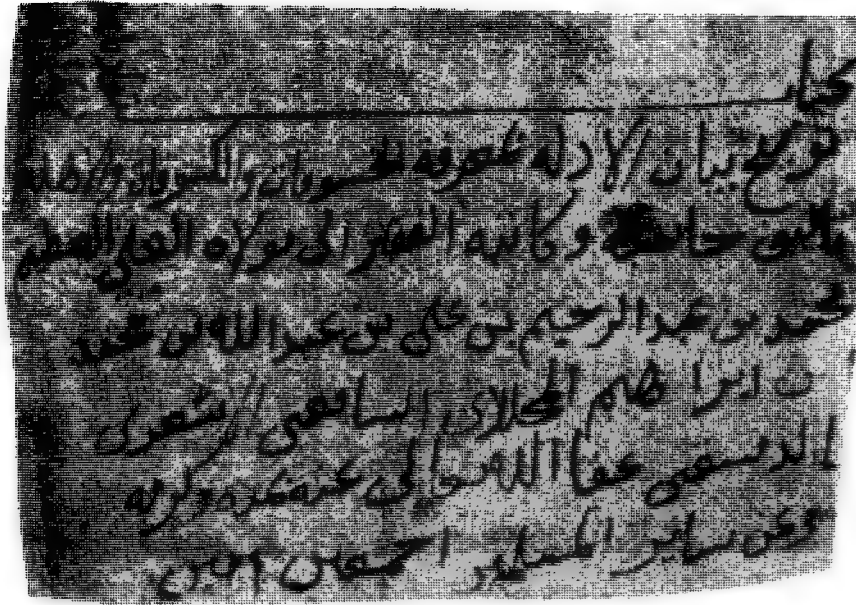 كتاب
توضيح بيان الادله بمعرفه الخسوفات والكسوفات والاهله
تاليف جامعه وكاتبه الفقير الى مولاه العلي العظيم
محمد بن عبد الرحيم بن علي بن عبد الله بن محمد
بن ابراهيم الشافعي الاشعري
الدمشقي عفا الله تعالى عنه بمنه وكرمه
وعن ساير المسلمين اجمعين امين